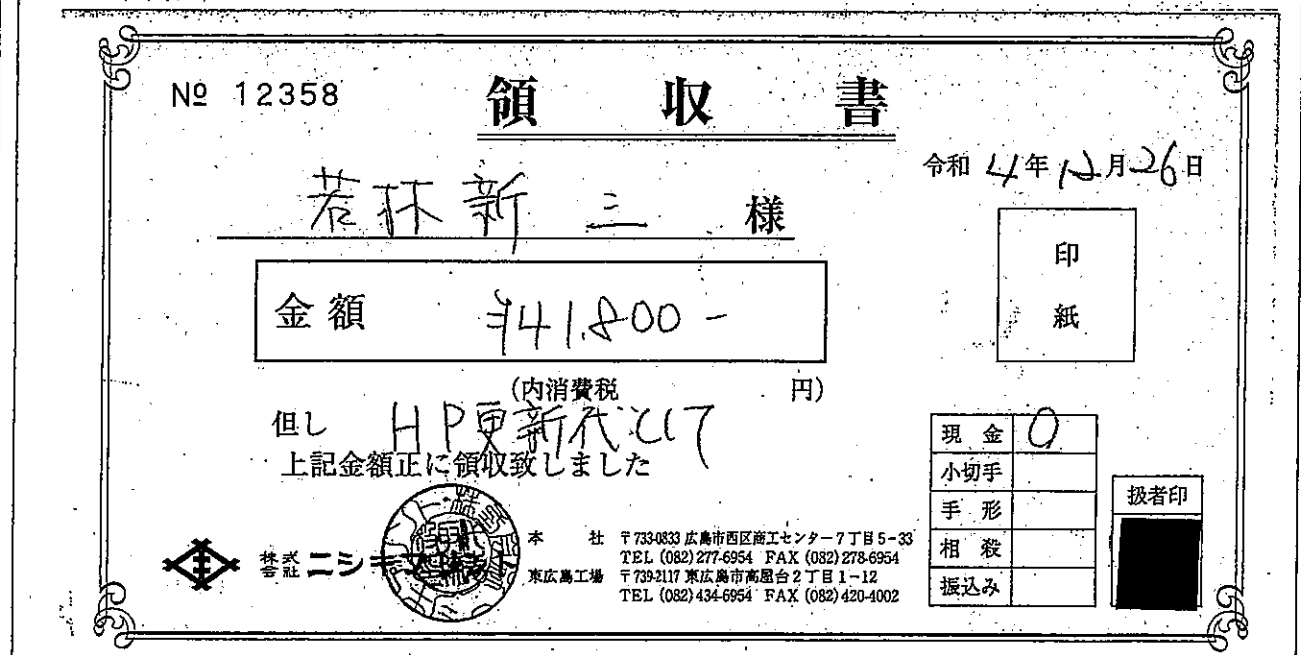 № 12358
領収書
令和4年12月26日
若林新三 様
印紙
金額 ¥41,800-
(内消費税 円)
但し HP更新代として
上記金額正に領収致しました
現金 0
小切手
手形
相殺
振込み
扱者印
株式会社ニシキ
本社 〒733-0833 広島市西区商工センター7丁目5-33
TEL (082)277-6954 FAX (082)278-6954
東広島工場 〒739-2117 東広島市高屋台2丁目1-12
TEL (082)434-6954 FAX (082)420-4002